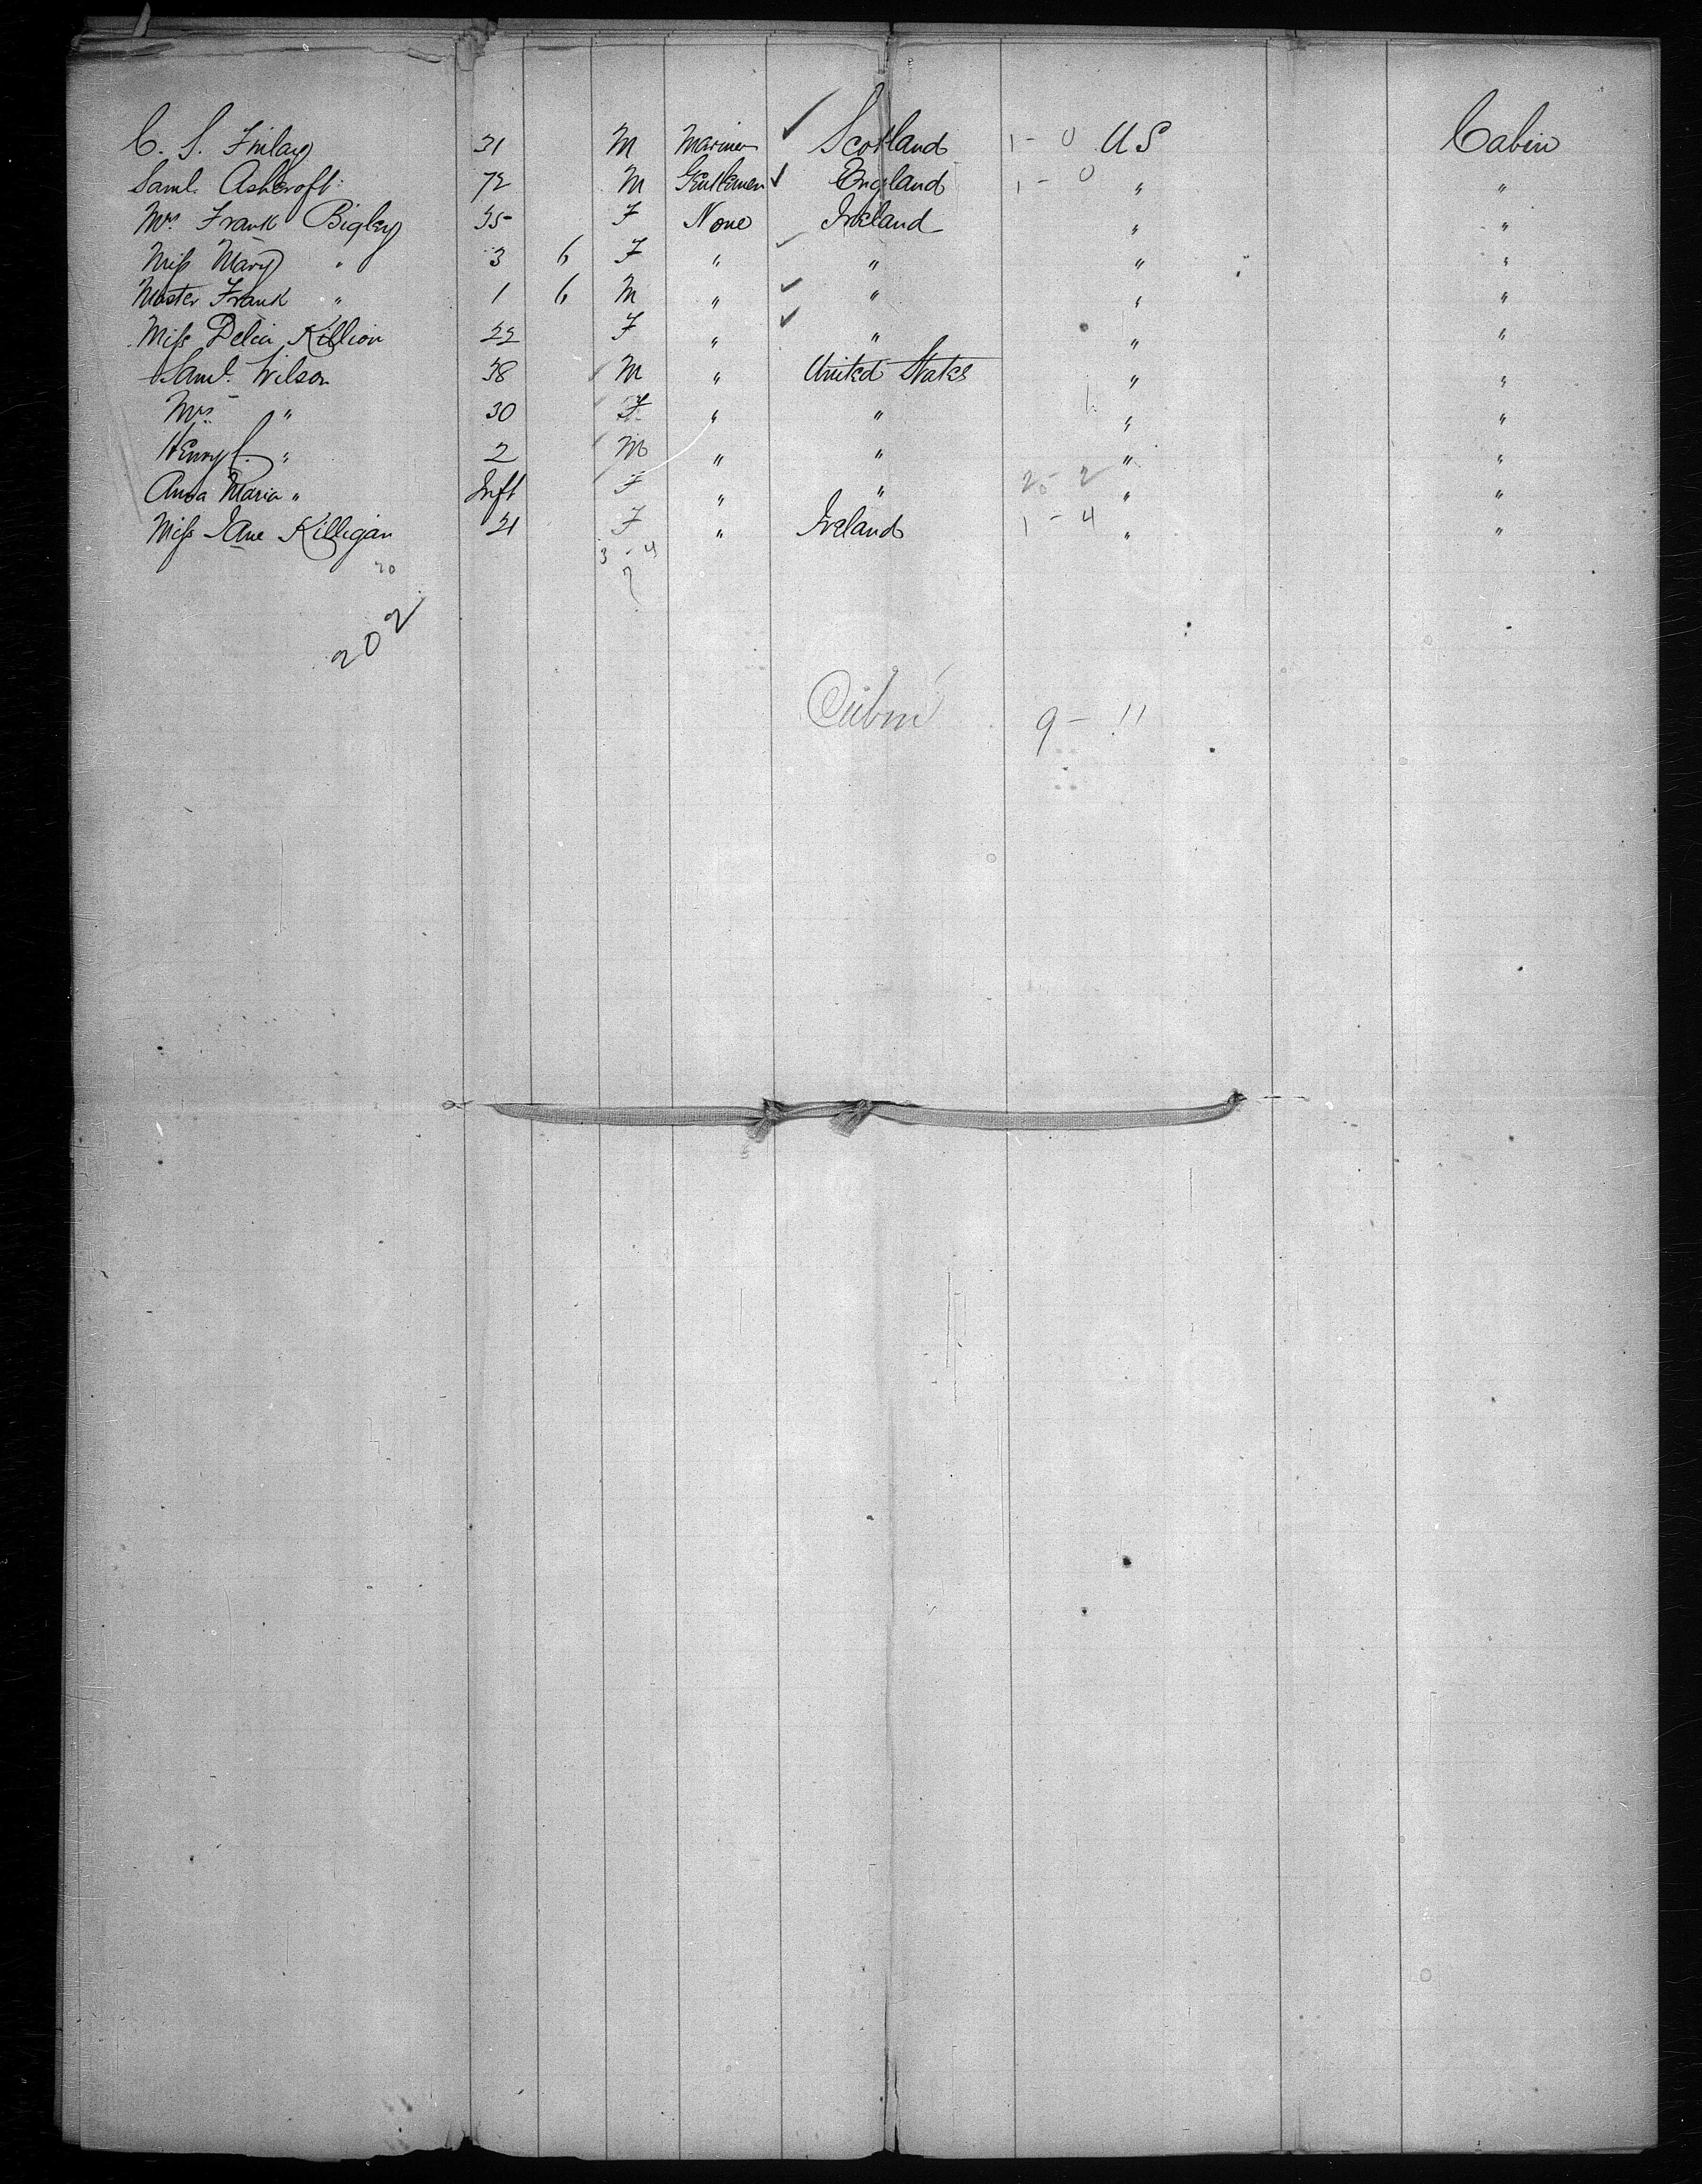 C. S. Finlay 31 M Mariner ✓ Scotland 1 - 0 US Cabin
Saml. Ashcroft 72 M Gentleman ✓ England 1 - 0 " "
Mrs. Frank Bigley 35 F None Ireland " "
Miss Mary " 3 6 F " ✓ " " "
Master Frank " 1 6 M " ✓ " " "
Miss Delia Killion 22 F " ✓ " " "
Saml. Wilson 38 M " United States " "
Mrs " 30 F " " " "
Henry C. " 2 M " " " "
Anna Maria " Inft F " " 2 - 2 " "
Miss Jane Killigan 21 F " Ireland 1 - 4 " "
3 - 4
20
7
202
Cabin 9 - 11